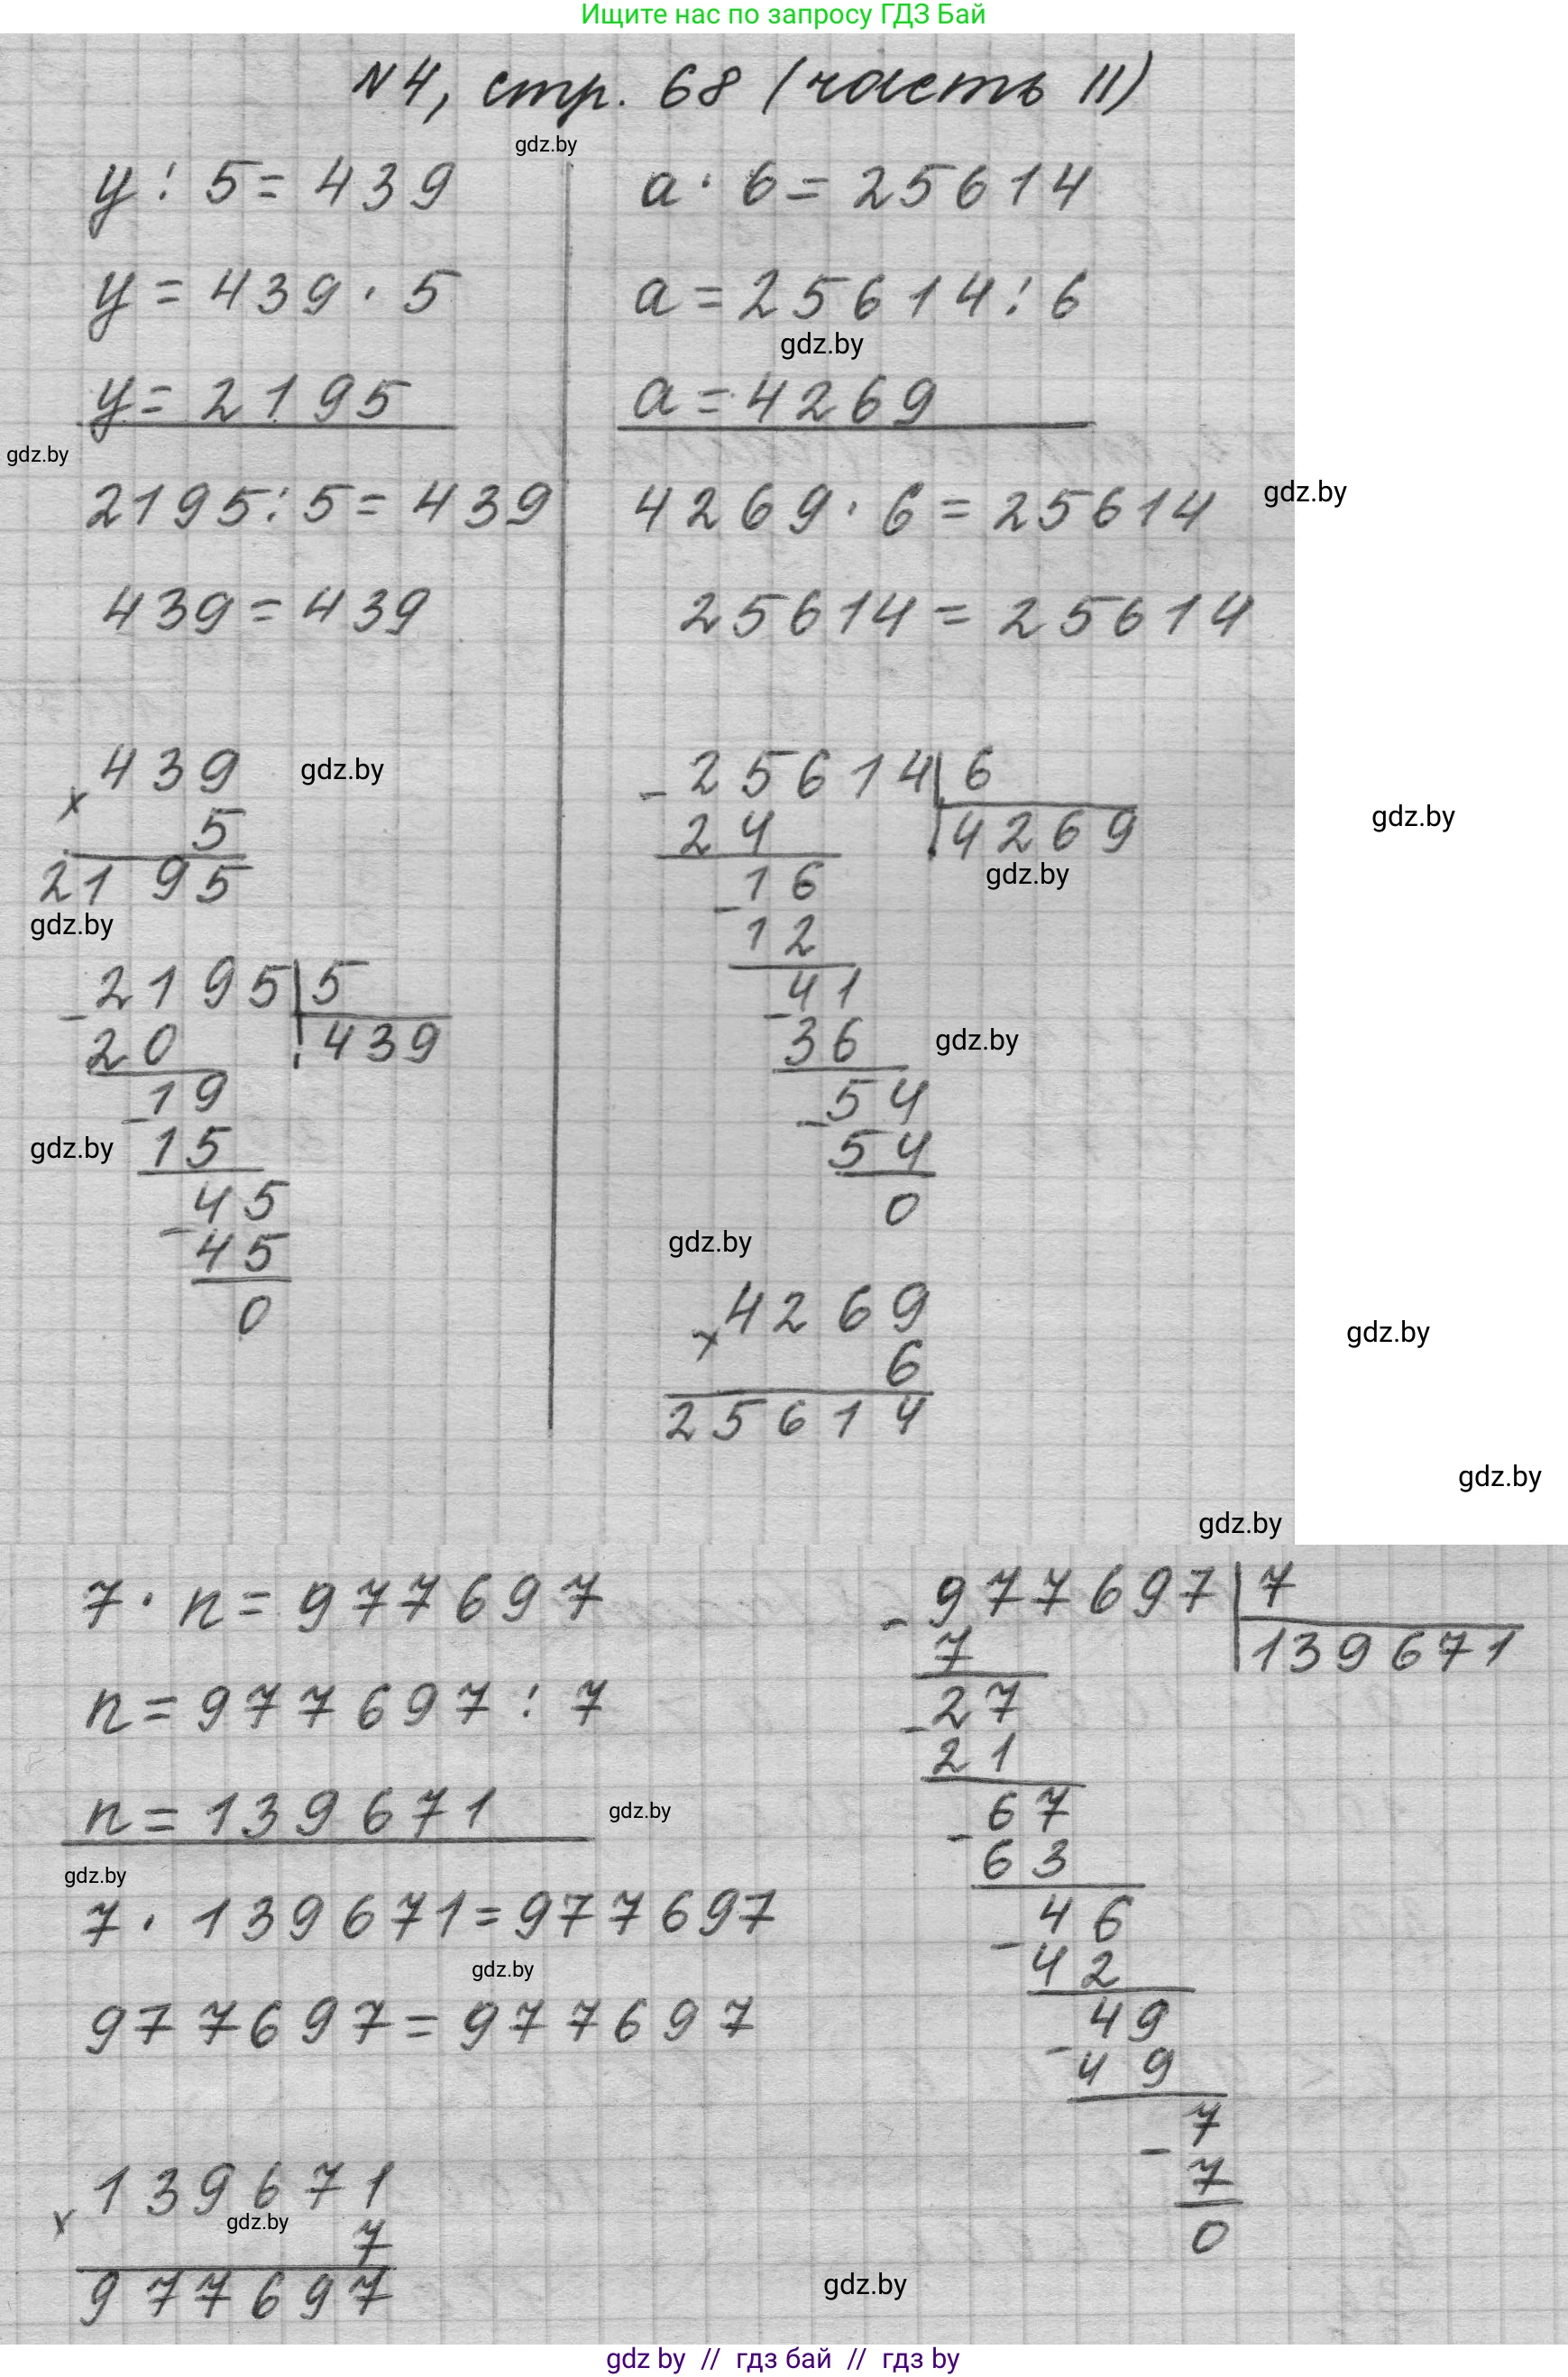 Ищите нас по запросу ГДЗ Бай
N4, стр. 68 (часть II)
gdz.by
y : 5 = 439
y = 439 · 5
y = 2195
gdz.by
2195 : 5 = 439
439 = 439
439 gdz.by
×
5
2195
gdz.by
- 2195 | 5
20 439
19
-
gdz.by 15
45
-
45
0
a · 6 = 25614
a = 25614 : 6
gdz.by
a = 4269
4269 · 6 = 25614 gdz.by
25614 = 25614
- 25614 | 6
24 4269 gdz.by
16 gdz.by
-
12
41
-
36 gdz.by
54
-
54
0
gdz.by
4269
× gdz.by
6
25614
gdz.by
gdz.by
7 · n = 977697
n = 977697 : 7
n = 139671 gdz.by
gdz.by
7 · 139671 = 977697
gdz.by
977697 = 977697
139671
× gdz.by
7
977697
- 977697 | 7
7 139671
27
-
21
67
-
63
46
-
42
49
-
49
7
-
7
0
gdz.by
gdz by // гдз бай // гдз by